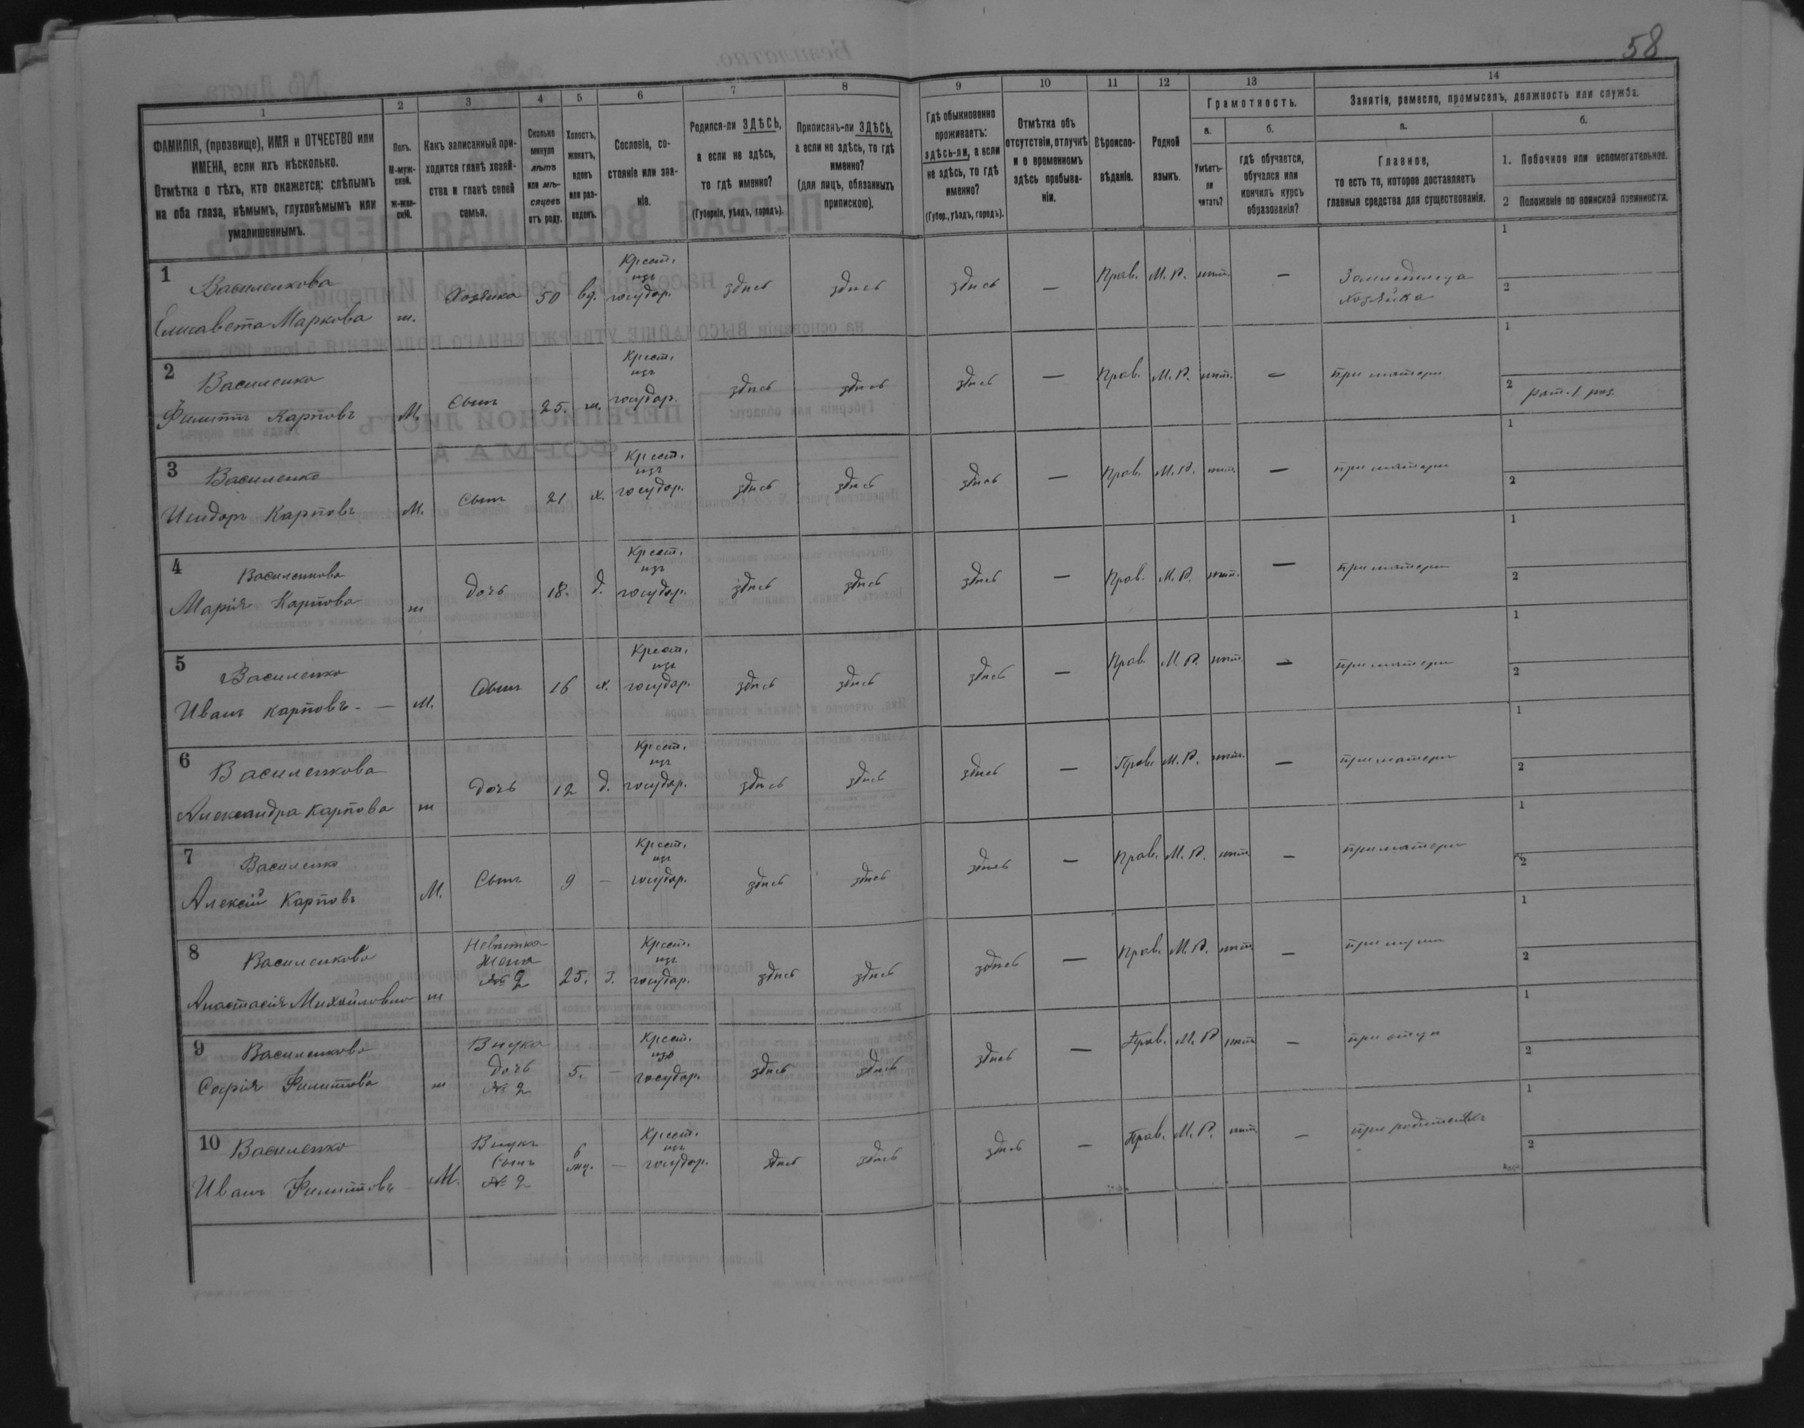 58
1 2 3 4 5 6 7 8 9 10 11 12 13 14
ФАМИЛІЯ, (прозвище), ИМЯ и ОТЧЕСТВО или
ИМЕНА, если ихъ нѣсколько.
Отмѣтка о тѣхъ, кто окажется: слѣпымъ
на оба глаза, нѣмымъ, глухонѣмымъ или
умалишеннымъ.
Полъ.
М-муж-
ской.
ж-жен-
скій.
Какъ записанный при-
ходится главѣ хозяй-
ства и главѣ своей
семьи.
Сколько
минуло
лѣтъ
или мѣ-
сяцевъ
отъ роду.
Холостъ,
женатъ,
вдовъ
или раз-
веденъ.
Сословіе, со-
стояніе или зва-
ніе.
Родился-ли ЗДѢСЬ,
а если не здѣсь,
то гдѣ именно?
(Губернія, уѣздъ, городъ).
Приписанъ-ли ЗДѢСЬ,
а если не здѣсь, то гдѣ
именно?
(для лицъ, обязанныхъ
припискою).
Гдѣ обыкновенно
проживаетъ:
здѣсь-ли, а если
не здѣсь, то гдѣ
именно?
(Губер., уѣздъ, городъ).
Отмѣтка объ
отсутствіи, отлучкѣ
и о временномъ
здѣсь пребыва-
ніи.
Вѣроиспо-
вѣданіе.
Родной
языкъ.
Грамотность.
а.
Умѣетъ-
ли
читать?
б.
гдѣ обучается,
обучался или
кончилъ курсъ
образованія?
Занятіе, ремесло, промыселъ, должность или служба.
а.
Главное,
то есть то, которое доставляетъ
главныя средства для существованія.
б.
1. Побочное или вспомогательное.
2 Положеніе по воинской повинности.
1 Василенкова
Елисавета Маркова ж. Хозяйка 50 вд. Крест. изъ государ. здѣсь здѣсь здѣсь — Прав. М. Р. нѣт. — Земледѣлица хозяйка 1 2
2 Василенко
Филиппъ Карповъ М. Сынъ 25. ж. Крест. изъ государ. здѣсь здѣсь здѣсь — Прав. М. Р. нѣт. — при матери 1 2 рат. 1 раз.
3 Василенко
Исидоръ Карповъ М. Сынъ 21 х. Крест. изъ государ. здѣсь здѣсь здѣсь — Прав. М. Р. нѣт. — при матери 1 2
4 Василенкова
Марія Карпова ж Дочь 18. д. Крест. изъ государ. здѣсь здѣсь здѣсь — Прав. М. Р. нѣт. — при матери 1 2
5 Василенко
Иванъ Карповъ. — М. Сынъ 16 х. Крест. изъ государ. здѣсь здѣсь здѣсь — Прав. М. Р. нѣт. — при матери 1 2
6 Василенкова
Александра Карпова ж Дочь 12 д. Крест. изъ государ. здѣсь здѣсь здѣсь — Прав. М. Р. нѣт. — при матери 1 2
7 Василенко
Алексій Карповъ М. Сынъ 9 — Крест. изъ государ. здѣсь здѣсь здѣсь — Прав. М. Р. нѣт. — при матери 1 2
8 Василенкова
Анастасія Михайловна ж Невѣстка Жена № 2 25. з. Крест. изъ государ. здѣсь здѣсь здѣсь — Прав. М. Р. нѣт. — при мужѣ 1 2
9 Василенкова
Софія Филиппова ж Внука Дочь № 2 5. — Крест. изъ государ. здѣсь здѣсь здѣсь — Прав. М. Р. нѣт. — при отцѣ 1 2
10 Василенко
Иванъ Филипповъ М. Внукъ Сынъ № 2 6 мц. — Крест. изъ государ. здѣсь здѣсь здѣсь — Прав. М. Р. нѣт. — при родителяхъ 1 2